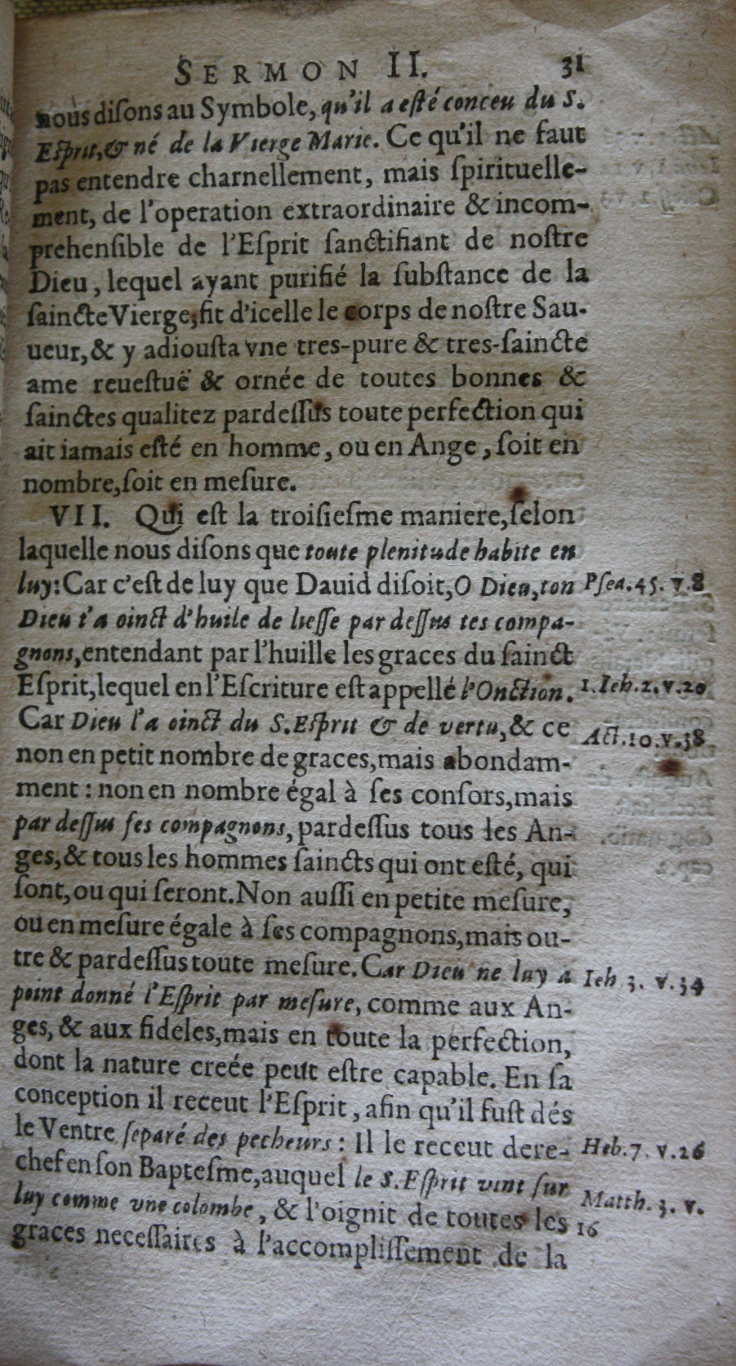 SERMON II. 31
nous diſons au Symbole, qu'il a eſté conceu du S.
Eſprit, & né de la Vierge Marie. Ce qu'il ne faut
pas entendre charnellement, mais ſpirituelle-
ment, de l'operation extraordinaire & incom-
prehenſible de l'Eſprit ſanctifiant de noſtre
Dieu, lequel ayant purifié la ſubſtance de la
ſaincte Vierge, fit d'icelle le corps de noſtre Sau-
ueur, & y adiouſta vne tres-pure & tres-ſaincte
ame reueſtuë & ornée de toutes bonnes &
ſainctes qualitez pardeſſus toute perfection qui
ait iamais eſté en homme, ou en Ange, ſoit en
nombre, ſoit en meſure.
VII. Qui eſt la troiſieſme maniere, ſelon
laquelle nous diſons que toute plenitude habite en
luy: Car c'eſt de luy que Dauid diſoit, O Dieu, ton Pſea. 45. v. 8
Dieu t'a oinct d'huile de lieſſe par deſſus tes compa-
gnons, entendant par l'huille les graces du ſainct
Eſprit, lequel en l'Eſcriture eſt appellé l'Onction. 1. Ieh. 2. v. 20
Car Dieu l'a oinct du S. Eſprit & de vertu, & ce Act. 10. v. 38.
non en petit nombre de graces, mais abondam-
ment : non en nombre égal à ſes conſors, mais
par deſſus ſes compagnons, pardeſſus tous les An-
ges, & tous les hommes ſaincts qui ont eſté, qui
ſont, ou qui ſeront. Non auſſi en petite meſure,
ou en meſure égale à ſes compagnons, mais ou-
tre & pardeſſus toute meſure. Car Dieu ne luy a Ieh 3. v. 34
point donné l'Eſprit par meſure, comme aux An-
ges, & aux fideles, mais en toute la perfection,
dont la nature creée peut eſtre capable. En ſa
conception il receut l'Eſprit, afin qu'il fuſt dés
le Ventre ſeparé des pecheurs : Il le receut dere- Heb. 7. v. 26
chef en ſon Bapteſme, auquel le S. Eſprit vint ſur Matth. 3. v.
luy comme vne colombe, & l'oignit de toutes les 16
graces neceſſaires à l'accompliſſement de la